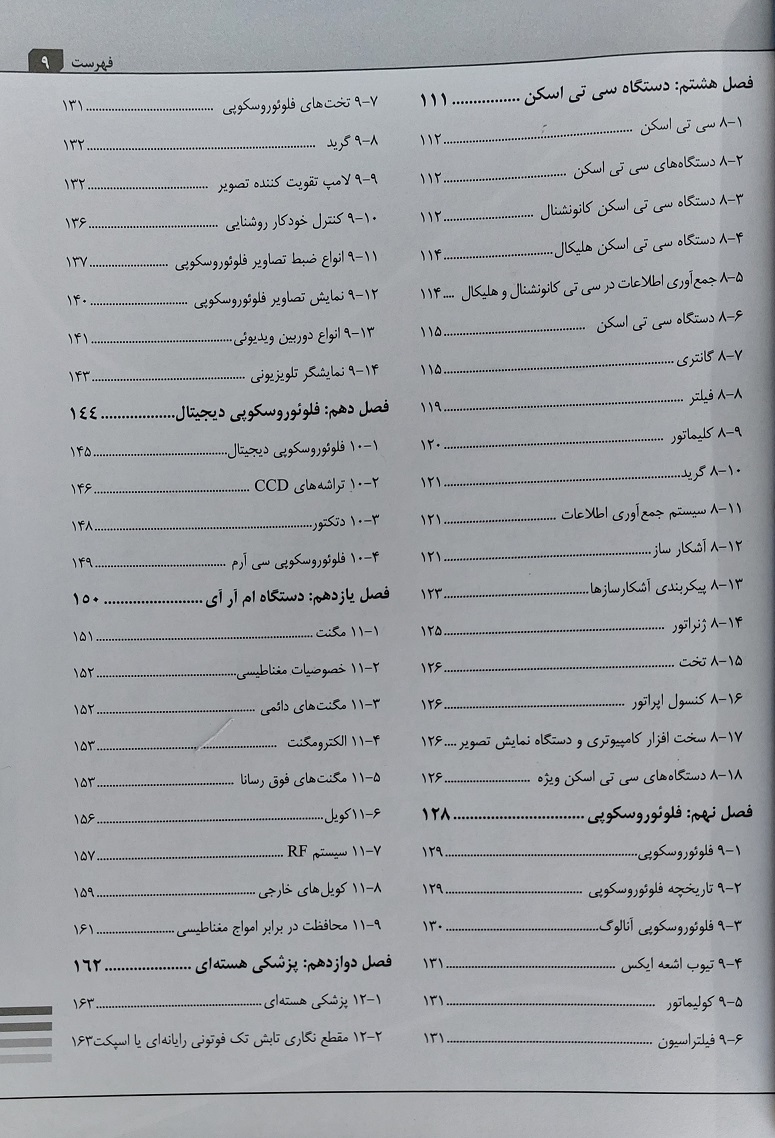 فهرست ۹
فصل هشتم: دستگاه سی تی اسکن ................ ۱۱۱
۸-۱ سی تی اسکن ................ ۱۱۲
۸-۲ دستگاه‌های سی تی اسکن ................ ۱۱۲
۸-۳ دستگاه سی تی اسکن کانونشنال ................ ۱۱۲
۸-۴ دستگاه سی تی اسکن هلیکال ................ ۱۱۴
۸-۵ جمع‌آوری اطلاعات در سی تی کانونشنال و هلیکال .... ۱۱۴
۸-۶ دستگاه سی تی اسکن ................ ۱۱۵
۸-۷ گانتری ................ ۱۱۵
۸-۸ فیلتر ................ ۱۱۹
۸-۹ کلیماتور ................ ۱۲۰
۸-۱۰ گرید ................ ۱۲۱
۸-۱۱ سیستم جمع‌آوری اطلاعات ................ ۱۲۱
۸-۱۲ آشکار ساز ................ ۱۲۱
۸-۱۳ پیکربندی آشکارسازها ................ ۱۲۳
۸-۱۴ ژنراتور ................ ۱۲۵
۸-۱۵ تخت ................ ۱۲۶
۸-۱۶ کنسول اپراتور ................ ۱۲۶
۸-۱۷ سخت افزار کامپیوتری و دستگاه نمایش تصویر .... ۱۲۶
۸-۱۸ دستگاه‌های سی تی اسکن ویژه ................ ۱۲۶
فصل نهم: فلوئوروسکوپی ................ ۱۲۸
۹-۱ فلوئوروسکوپی ................ ۱۲۹
۹-۲ تاریخچه فلوئوروسکوپی ................ ۱۲۹
۹-۳ فلوئوروسکوپی آنالوگ ................ ۱۳۰
۹-۴ تیوب اشعه ایکس ................ ۱۳۱
۹-۵ کولیماتور ................ ۱۳۱
۹-۶ فیلتراسیون ................ ۱۳۱
۹-۷ تخت‌های فلوئوروسکوپی ................ ۱۳۱
۹-۸ گرید ................ ۱۳۲
۹-۹ لامپ تقویت کننده تصویر ................ ۱۳۲
۹-۱۰ کنترل خودکار روشنایی ................ ۱۳۶
۹-۱۱ انواع ضبط تصاویر فلوئوروسکوپی ................ ۱۳۷
۹-۱۲ نمایش تصاویر فلوئوروسکوپی ................ ۱۴۰
۹-۱۳ انواع دوربین ویدیوئی ................ ۱۴۱
۹-۱۴ نمایشگر تلویزیونی ................ ۱۴۳
فصل دهم: فلوئوروسکوپی دیجیتال ................ ۱۴۴
۱۰-۱ فلوئوروسکوپی دیجیتال ................ ۱۴۵
۱۰-۲ تراشه‌های CCD ................ ۱۴۶
۱۰-۳ دتکتور ................ ۱۴۸
۱۰-۴ فلوئوروسکوپی سی آرم ................ ۱۴۹
فصل یازدهم: دستگاه ام آر آی ................ ۱۵۰
۱۱-۱ مگنت ................ ۱۵۱
۱۱-۲ خصوصیات مغناطیسی ................ ۱۵۲
۱۱-۳ مگنت‌های دائمی ................ ۱۵۲
۱۱-۴ الکترومگنت ................ ۱۵۳
۱۱-۵ مگنت‌های فوق رسانا ................ ۱۵۳
۱۱-۶ کویل ................ ۱۵۶
۱۱-۷ سیستم RF ................ ۱۵۷
۱۱-۸ کویل‌های خارجی ................ ۱۵۹
۱۱-۹ محافظت در برابر امواج مغناطیسی ................ ۱۶۱
فصل دوازدهم: پزشکی هسته‌ای ................ ۱۶۲
۱۲-۱ پزشکی هسته‌ای ................ ۱۶۳
۱۲-۲ مقطع نگاری تابش تک فوتونی رایانه‌ای یا اسپکت ۱۶۳